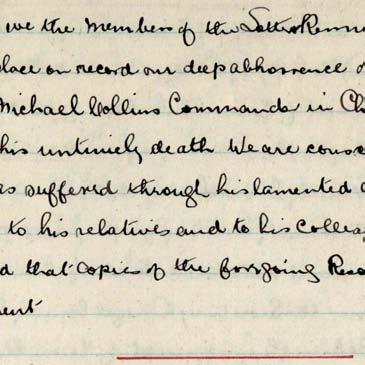 we the members of the
place on record our deep abhorrence
Michael Collins Commander in Ch
his untimely death We are cons
as suffered through his lamented
to his relatives and to his Collea
d that copies of the forgoing Reso
ment